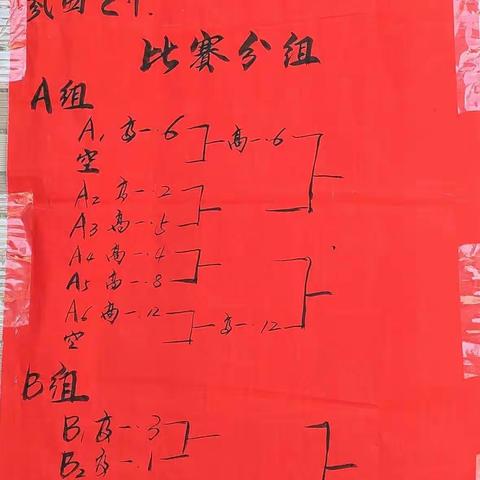 比賽分组
A组
A1 高一.6 高一.6
空
A2 高一.2
A3 高一.5
A4 高一.4
A5 高一.8
A6 高一.12 高一.12
空
B组
B1 高一.3
B2 高一.1